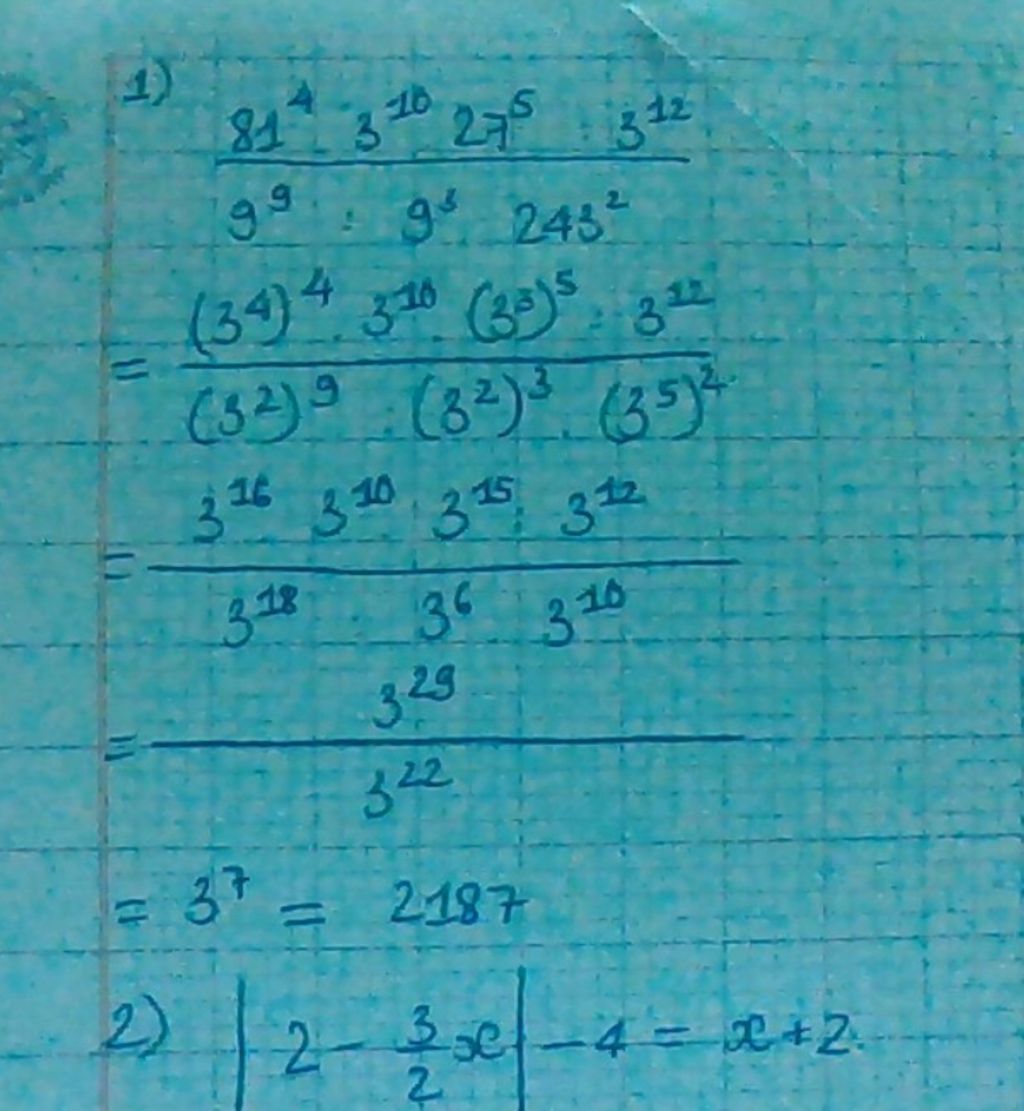 1)
81⁴ . 3¹⁰ 27⁵ : 3¹²
9⁹ : 9³ 243²
= (3⁴)⁴ . 3¹⁰ (3³)⁵ : 3¹²
(3²)⁹ : (3²)³ . (3⁵)²
= 3¹⁶ 3¹⁰ . 3¹⁵ : 3¹²
3¹⁸ : 3⁶ 3¹⁰
= 3²⁹
3²²
= 3⁷ = 2187
2) |2 - 3/2 x| - 4 = x + 2.